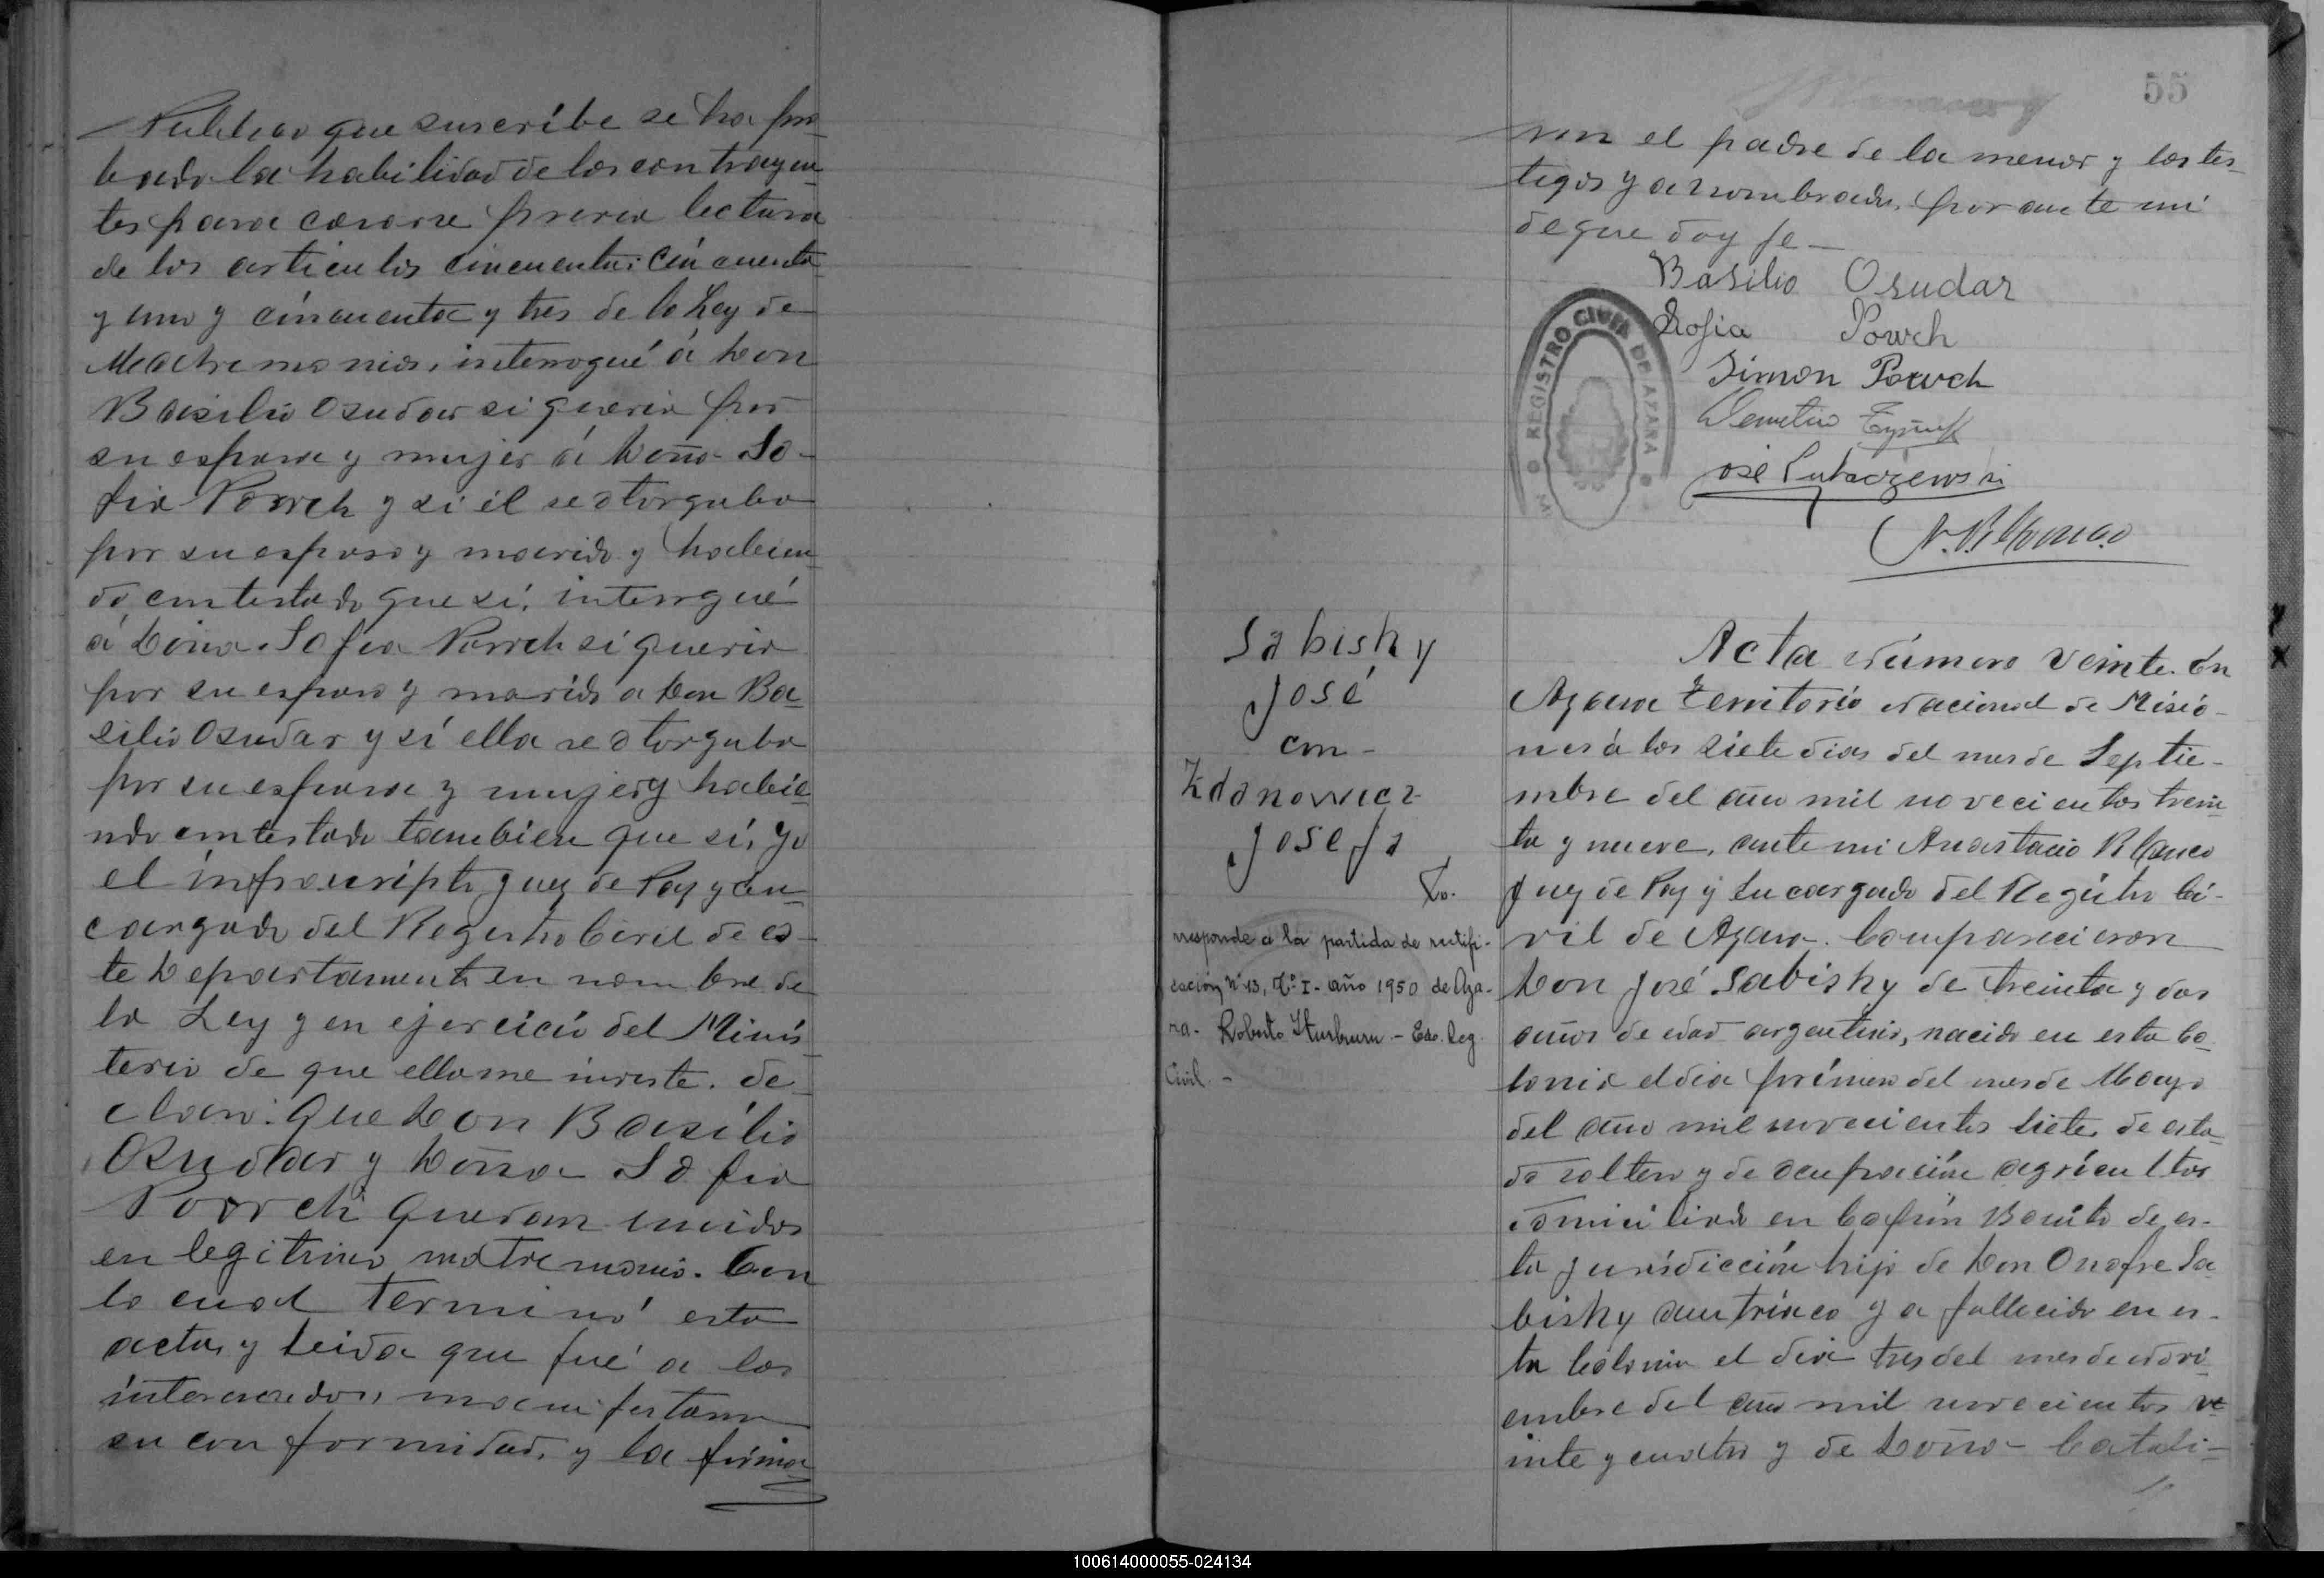 Publico que suscribe se ha pro-
bado la habilidad de los contrayen-
tes para casarse previa lectura
de los articulos cincuenta; cincuenta
y uno y cincuenta y tres de la Ley de
Matrimonios, interrogué á Don
Basilio Osudar si queria por
su esposa y mujer á Doña So-
fia Powch y si él se otorgaba
por su esposo y marido y habien-
do contestado que sí, interrogué
á Doña Sofia Powch si queria
por su esposo y marido a Don Ba-
silio Osudar y sí ella se otorgaba
por su esposa y mujer y habie-
ndo contestado tambien que sí, yo
el infrascripto Juez de Paz y en-
cargado del Registro Civil de es-
te Departamento en nombre de
la Ley y en ejercicio del Minis-
terio de que ella me inviste. de-
claro: Que Don Basilio
Osudar y Doña Sofia
Powch quedan unidos
en legitimo matrimonio. Con
lo cual terminó esta
acta, y leida que fué a los
interesados, manifestaron
su conformidad, y la firma-
55
ron el padre de la menor y los tes-
tigos ya nombrados, por ante mi
de que doy fe_
Basilio Osudar
Sofia Powch
Simon Powch
Demetrio
José Lukaszewski
REGISTRO CIVIL DE AZARA
Sabisky
José
con-
Zdanowicz
Josefa
rresponde a la partida de rectifi-
cación Nº 13, Tº I- año 1950 de Aza-
ra- Roberto Iturburu - Edo. Reg.
Civil. -
Acta Número Veinte. En
Azara Territorio Nacional de Misio-
nes á los siete dias del mes de Septie-
mbre del año mil novecientos trein
ta y nueve, ante mi Anastacio R. Blanco
Juez de Paz y Encargado del Registro Ci-
vil de Azara. Comparecieron
Don José Sabisky de treinta y dos
años de edad argentino, nacido en esta Co-
lonia el dia primero del mes de Mayo
del año mil novecientos siete, de esta-
do soltero y de ocupación agricultor
domiciliado en Capón Bonito de es-
ta jurisdicción hijo de Don Onofre Sa-
bisky austriaco ya fallecido en es-
ta Colonia el dia tres del mes de Novi-
embre del año mil novecientos ve
inte y cuatro y de Doña Catali-
100614000055-024134